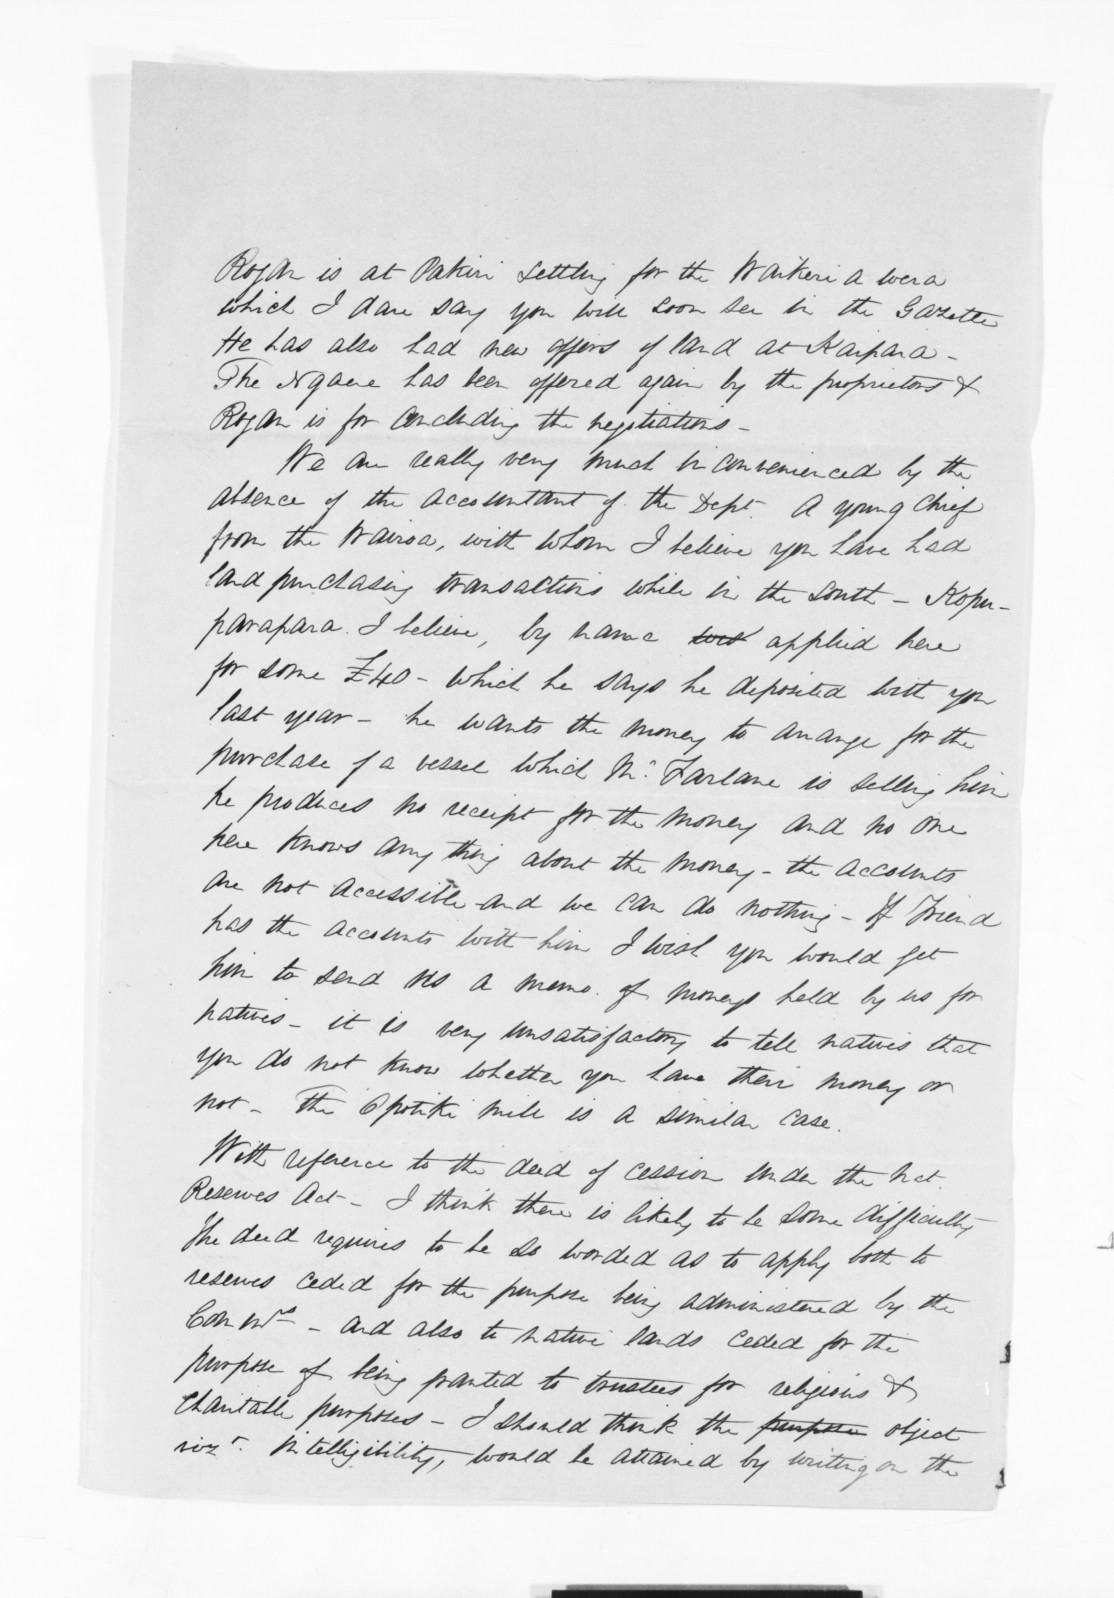 Rogan is at Pakiri settling for the Waikeri a wera
which I dare say you will soon see in the Gazette
He has also had new offers of land at Kaipara -
The Ngaere has been offered again by the proprietors &
Rogan is for concluding the negotiations -
We are really very much inconvenienced by the
absence of the accountant of the Dept. A young chief
from the Wairoa, with whom I believe you have had
land purchasing transactions while in the South - Kopu-
parapara I believe, by name was applied here
for some £40 - which he says he deposited with you
last year - he wants the money to arrange for the
purchase of a vessel which Mc Farlane is selling him
he produces no receipt for the money and no one
here knows any thing about the money - the accounts
are not accessible and we can do nothing - If Friend
has the accounts with him I wish you would get
him to send us a memo. of moneys held by us for
natives - it is very unsatisfactory to tell natives that
you do not know whether you have their money or
not - The Opotiki mill is a similar case.
With reference to the deed of cession under the Nat.
Reserves Act - I think there is likely to be some difficulty
The deed requires to be so worded as to apply both to
reserves ceded for the purpose being administered by the
Comm's - and also to native lands ceded for the
purpose of being granted to trustees for religious &
Charitable purposes - I should think the purpose object
viz. intelligibility, would be attained by writing on the